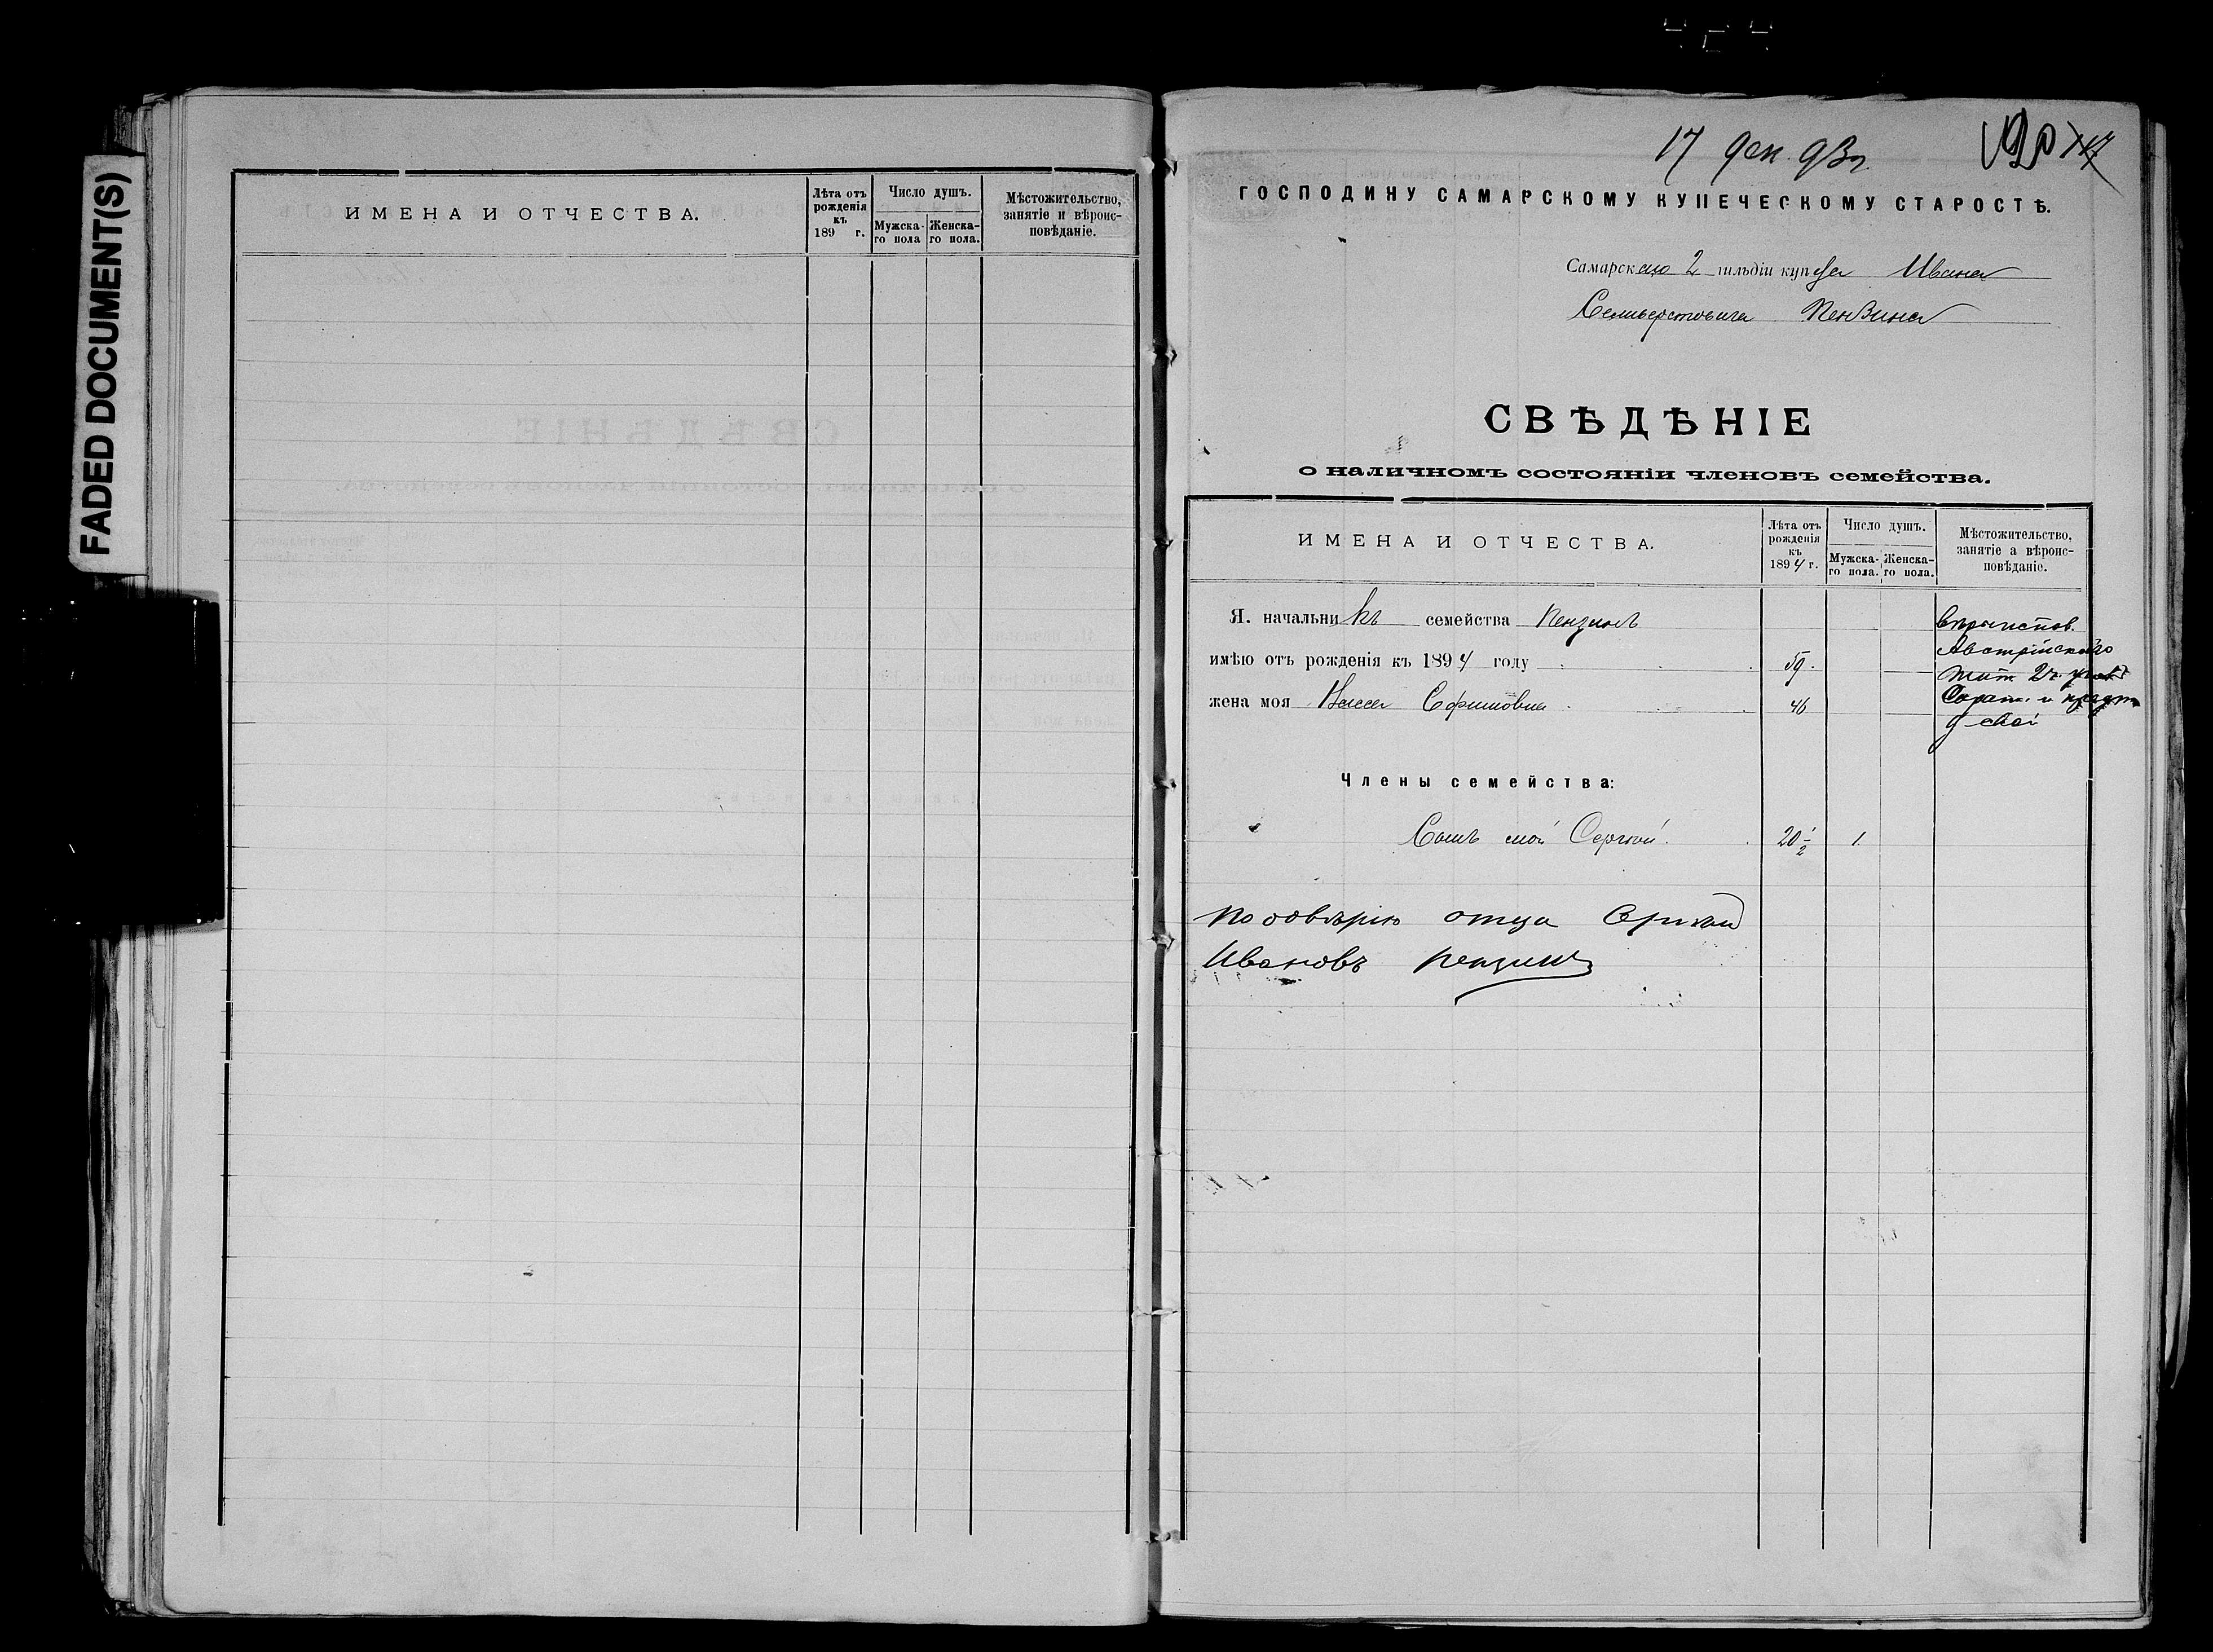 FADED DOCUMENT(S)
ИМЕНА И ОТЧЕСТВА.
Лѣта отъ рожденія къ 189 г.
Число душъ.
Мужска-го пола
Женска-го пола.
Мѣстожительство, занятіе и вѣроис-повѣданіе.
17 дек. 93 г.
ГОСПОДИНУ САМАРСКОМУ КУПЕЧЕСКОМУ СТАРОСТѢ.
Самарскаго 2 гильдіи купца Ивана
Селиверстовича Пензина
СВѢДѢНІЕ
о наличномъ состояніи членовъ семейства.
ИМЕНА И ОТЧЕСТВА.
Лѣта отъ рожденія къ 1894 г.
Число душъ.
Мужска-го пола.
Женска-го пола.
Мѣстожительство, занятіе а вѣроис-повѣданіе.
Я. начальникъ семейства Пензинъ
имѣю отъ рожденія къ 1894 году 59.
жена моя Ефимовна 46
вѣроиспов.
Австрійскаго
жит. 2 ч.
Сарат. и
д. свой
Члены семейства:
Сынъ мой Сергѣй. 20 1/2 1
По довѣрію отца Сергѣй
Ивановъ Пензинъ